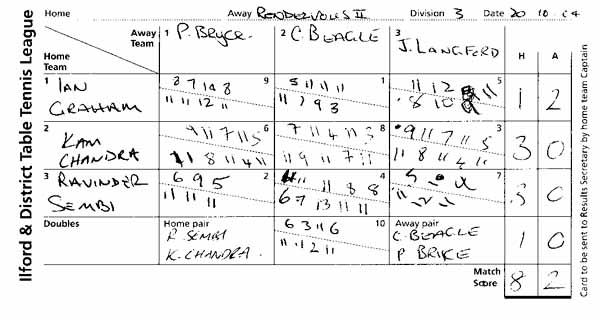 Ilford & District Table Tennis League
Home Away RENDEZVOUS II Division 3 Date 20 10
Away Team 1 P. BRYCE 2 C. BEAGLE 3 J. LANGFORD H A
Home Team
1 IAN GRAHAM 9 1 5 1 2
8 7 11 8
11 11 12 11
5 11 11 11
11 7 9 3
11 12
8 10
2 KAM CHANDRA 6 8 3 3 0
9 11 7 11 5
11 8 11 4 11
7 11 4 11 3
11 9 11 7 11
9 11 7 11 5
11 8 11 4 11
3 RAVINDER SEMBI 2 4 7 3 0
6 9 5
11 11 11
11 11 8 8
6 7 13 11 11
Doubles Home pair 10 Away pair 1 0
R. SEMBI
K. CHANDRA
6 3 11 6
11 11 12 11
C. BEAGLE
P BRIKE
Match Score 8 2
Card to be sent to Results Secretary by home team Captain